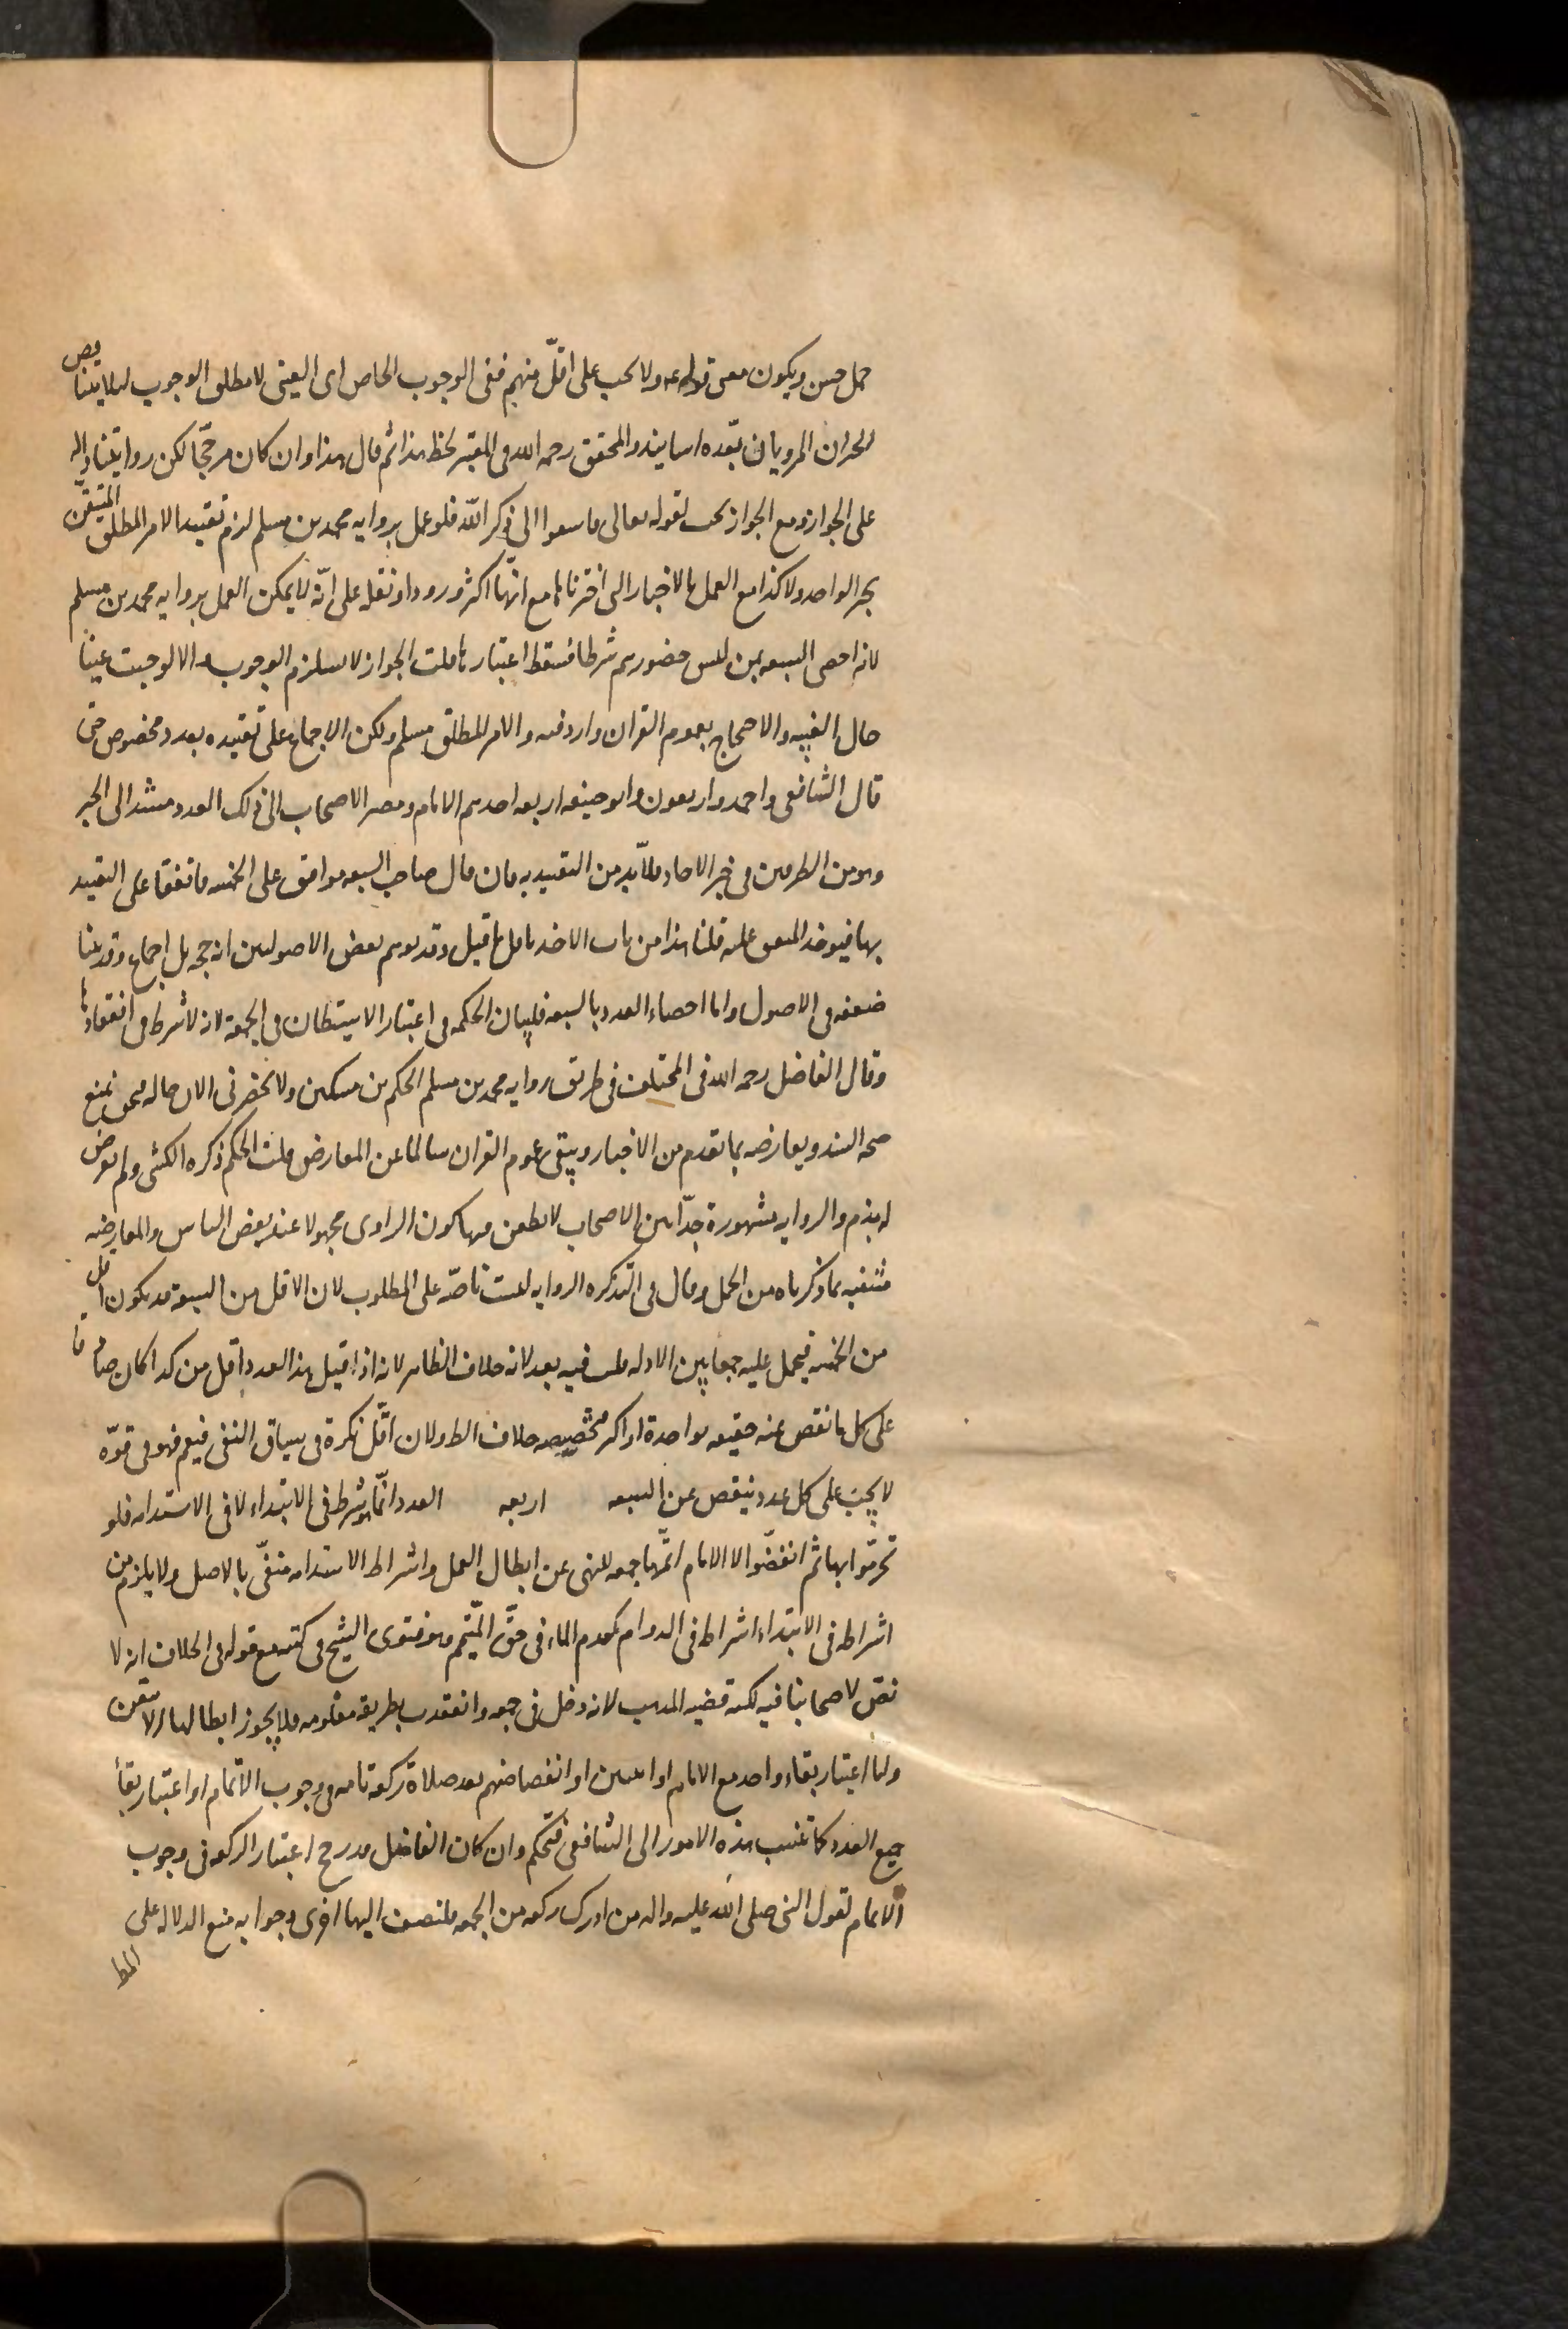 حمل حسن ويكون معنى قوله عه ولا يجب على اقلّ منهم نفى الوجوب الخاص اى العينى لا مطلق الوجوب لئلا يتناقض
الخبران المرويان بعّده اسانيد والمحقق رحمه الله فى المعتبر لحظ هذا ثم قال هذا وان كان مرجّحا لكن روايتنا دالة
على الجواز ومع الجواز يجب لقوله تعالى فاسعوا الى ذكر اللّه فلو عمل برواية محمد بن مسلم لزم تقييد الامر المطلق المتيقّن
بخبر الواحد ولا كذا مع العمل بالاخبار التى اخترناها مع انهّا اكثر ورودا ونقله على انّه لا يمكن العمل برواية محمد بن مسلم
لانه احصى السبعه بمن ليس حضورهم شرطا فسقط اعتبارها قلت الجواز لا يستلزم الوجوب والا لوجبت عينا
حال الغيبه والاحتجاج بعموم القران وارد فيه والامر المطلق مسلم ولكن الاجماع على تقييده بعدد مخصوص حتى
قال الشافعى واحمد واربعون وابو حنيفه اربعه احدهم الامام ومصير الاصحاب الى ذلك العدد مستند الى الخبر
وهو من الطرفين فى خبر الاحاد فلا بّد من التقييد به فان قال صاحب السبعه موافق على الخمسه فاتفقا على التقييد
بها فيوخذ المتفق عليه قلنا هذا من باب الاخذ باقل ما قيل وقد يوهم بعض الاصوليين انه حجه بل اجماع وقد بينا
ضعفه فى الاصول واما احصاء العدد بالسبعه فلبيان الحكمه فى اعتبار الاستيطان فى الجمعة لانه لا شرط فى انعقادها
وقال الفاضل رحمه الله فى المختلف فى طريق رواية محمد بن مسلم الحكم بن مسكين ولا يحضرنى الان حاله فنحن نمنع
صحه السند ويعارضه بما تقدم من الاخبار ويبقى عموم القران سالما عن المعارض قلت الحكم ذكره الكشى ولم يعرض
له بذم والروايه مشهورة جدّا بين الاصحاب لا يطعن فيها كون الراوى مجهولا عند بعض الناس والمعارضه
منتفيه بما ذكرناه من الحمل وقال فى التذكره الروايه ليست ناصّه على المطلوب لان الاقل من السبعة قد يكون اقل
من الخمسه فيحمل عليه جمعا بين الادله قلت فيه بعد لانه خلاف الظاهر لانه اذا قيل هذا العدد اقل من كذا كان صادقا
على كل ما نقص عنه حقيقه بواحدة او اكثر فتخصيصه خلاف الظ ولان اقّل نكرة فى سياق النفى فيعم فهو فى قوّه
لا يجب على كل عدد ينقص عن السبعه اربعه العدد انمّا يشرط فى الابتداء لا فى الاستدامه فلو
تحرمّوا بها ثم انفضّوا الا الامام اتمّها جمعه للنهى عن ابطال العمل واشراط الاستدامه منفىّ بالاصل ولا يلزم من
اشراطه فى الابتداء اشراطه فى الدوام كعدم الماء فى حّق المتيّمم وهو فتوى الشيخ فى كتبه مع قوله فى الخلاف انه لا
نصّ لاصحابنا فيه لكنه قضيه المذهب لانه دخل فى جمعه وانعقدت بطريقه معلومه فلا يجوز ابطالها الا بيقين
واما اعتبار بقاء واحد مع الامام او اثنين او انفضاضهم بعد صلاة ركعة تامه فى وجوب الاتمام او اعتبار بقاء
جميع العدد كما تنسب هذه الامور الى الشافعى فتحكم وان كان الفاضل قد رجح اعتبار الركعه فى وجوب
الاتمام لقول النبى صلى اللّه عليه واله من ادرك ركعه من الجمعه فليضف اليها اخرى وجوابه منع الدلاله على
المط